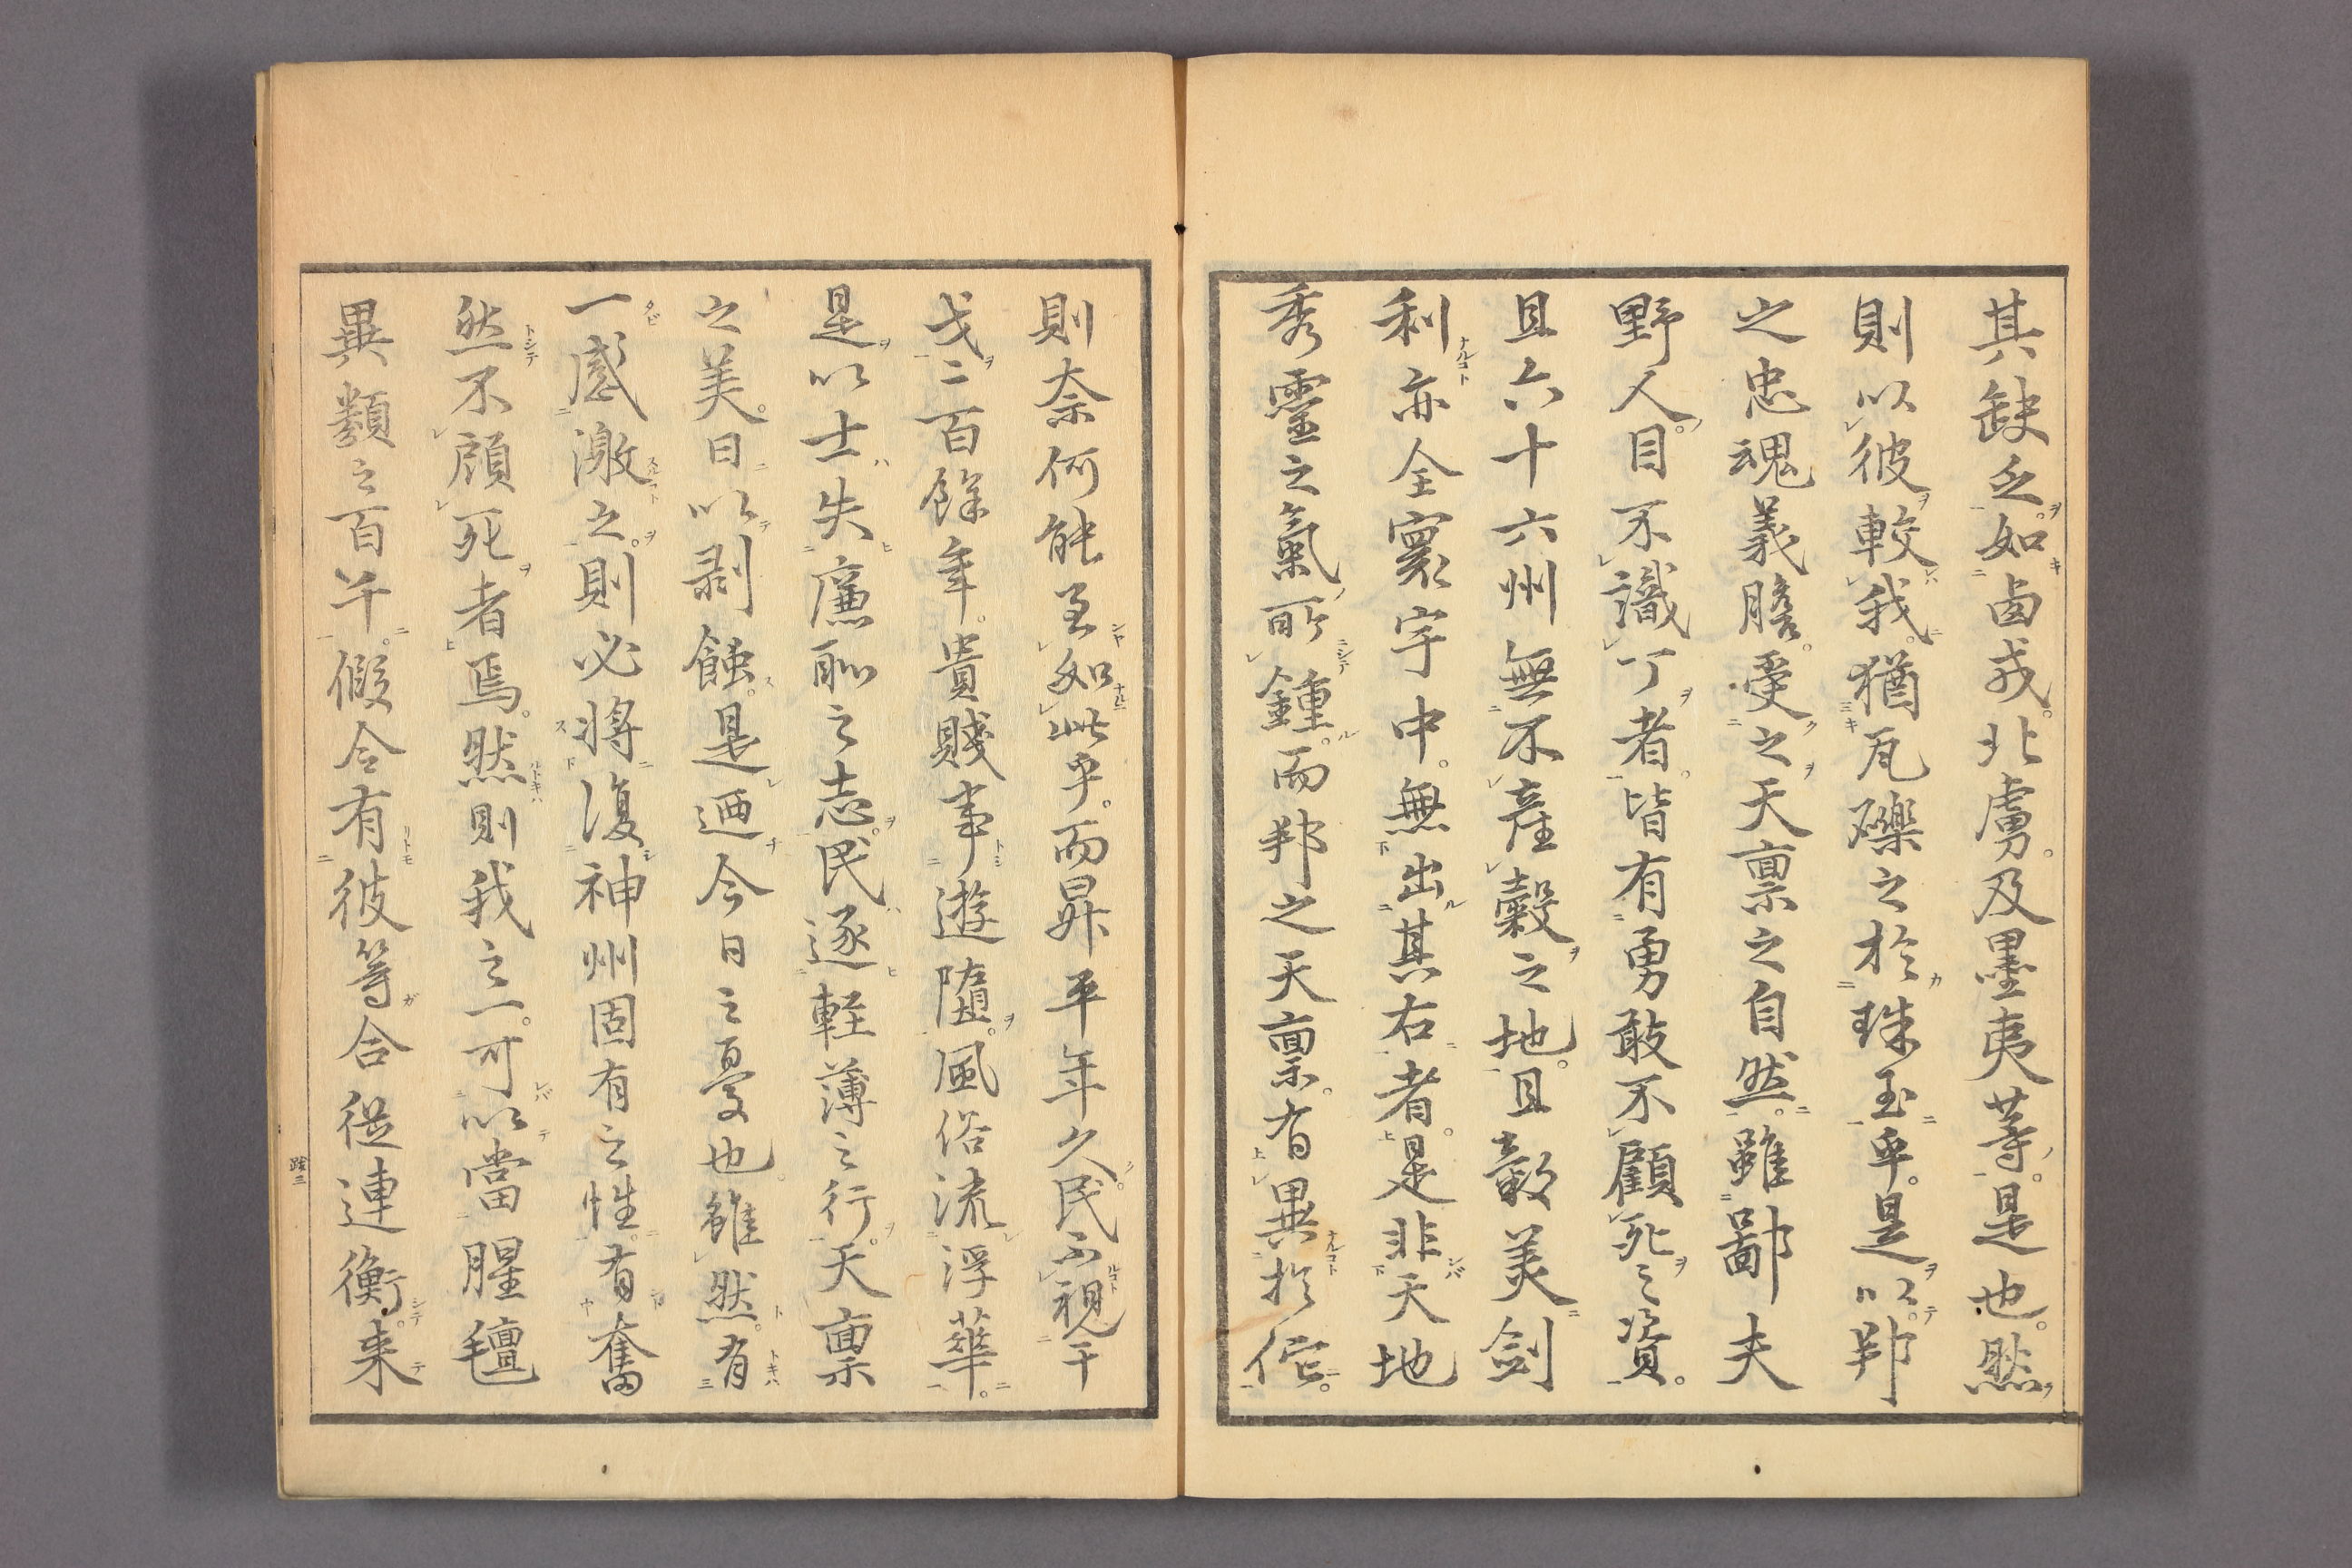 其缺乏如鹵戎北虜及墨夷等是也然
則以彼較我猶瓦礫之於珠玉乎是以邦
之忠魂義膽受之天禀之自然雖鄙夫
野人目不識丁者皆有勇敢不顧死之資
且六十六州無不產穀之地且穀美劍
利亦全寰宇中無出其右者是非天地
秀靈之氣所鍾而邦之天禀有異於佗
則奈何能至如此乎而昇平年久民不視干
戈二百餘年貴賤事遊隨風俗流浮華
是以士失廉恥之志民逐輕薄之行天禀
之美日以剥蝕是迺今日之憂也雖然有
一感激之則必將復神州固有之性有奮
然不顧死者焉然則我之一可以當腥氊
異類之百千假令有彼等合從連衡来
跋三